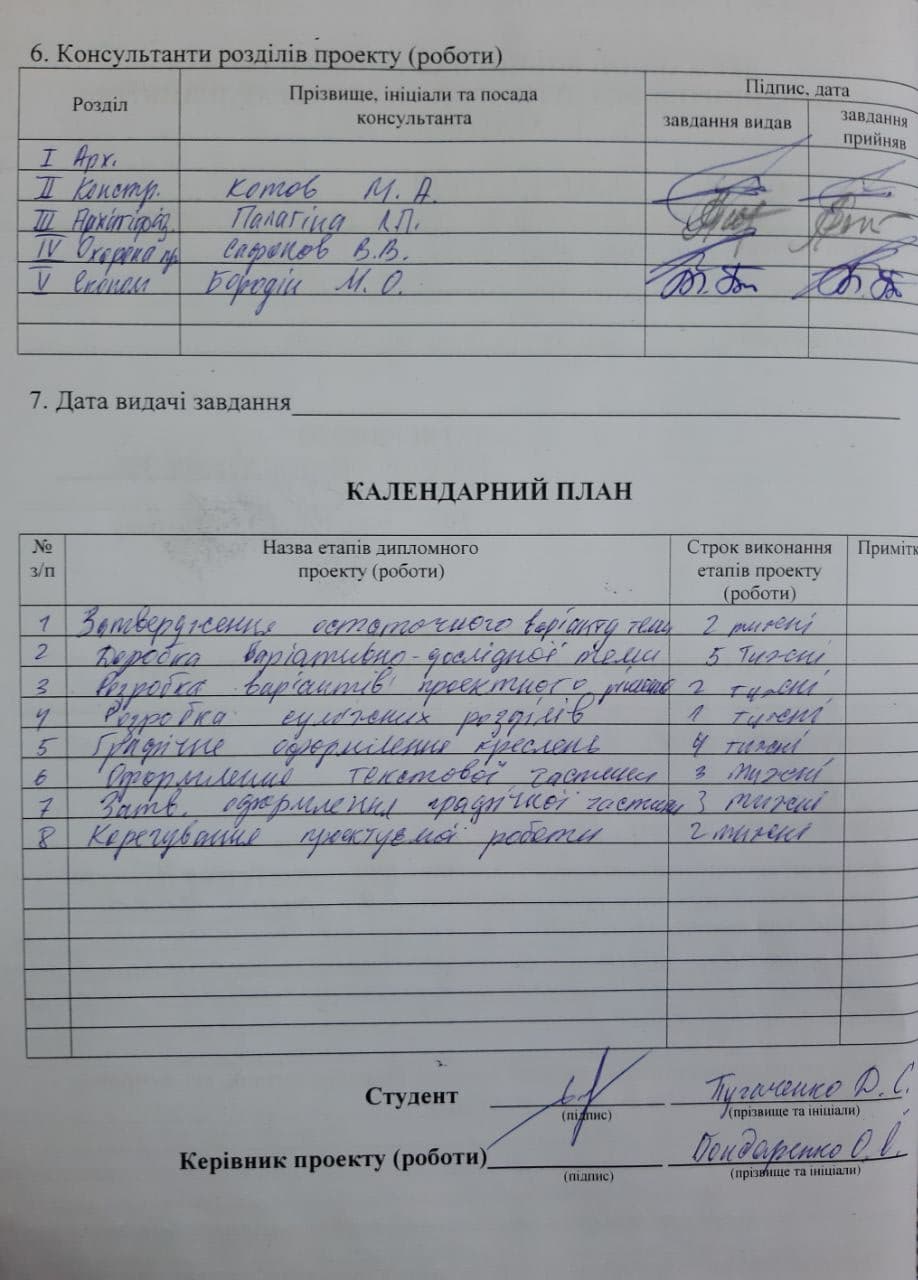 6. Консультанти розділів проекту (роботи)
Розділ
Прізвище, ініціали та посада
консультанта
Підпис, дата
завдання видав
завдання
прийняв
I Арх.
II Констр. Котов М. А.
III Палагіна Л.П.
IV Охорона пр. Сафонов В.В.
V Економ Бородін М. О.
7. Дата видачі завдання
КАЛЕНДАРНИЙ ПЛАН
№
з/п
Назва етапів дипломного
проекту (роботи)
Строк виконання
етапів проекту
(роботи)
Примітк
1 Затвердження остаточного варіанту теми 2 тижні
2 варіативно-дослідної теми 5 тижні
3 Розробка варіантів проектного 2 тижні
4 Розробка суміжних розділів 1 тижні
5 Графічне оформлення креслень 4 тижні
6 Оформлення текстової частини 3 тижні
7 Затв. оформлення графічної частини 3 тижні
8 Корегування проектуємої роботи 2 тижні
Студент
(підпис)
Пугаченко Д. С.
(прізвище та ініціали)
Керівник проекту (роботи)
(підпис)
Бондаренко О. І.
(прізвище та ініціали)